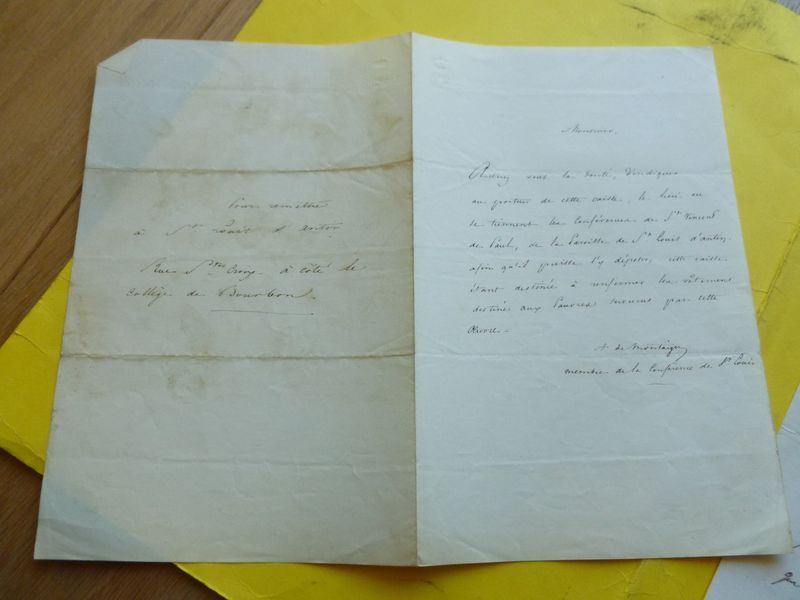 Pour remettre
à St Louis d'antin
Rue Ste Croix à côté le
Collège de Bourbon.
Monsieur,
Ayez vous la bonté, d'indiquer
au porteur de cette caisse, le lieu ou
se tiennent les Conférences de St Vincent
de Paul, de la Paroisse de St Louis d'antin,
afin qu'il puisse l'y déposer, cette caisse
étant destinée à renfermer les vêtements
destinés aux Pauvres secourus par cette
Œuvre.
de Montaigu
membre de la Conférence de St Louis